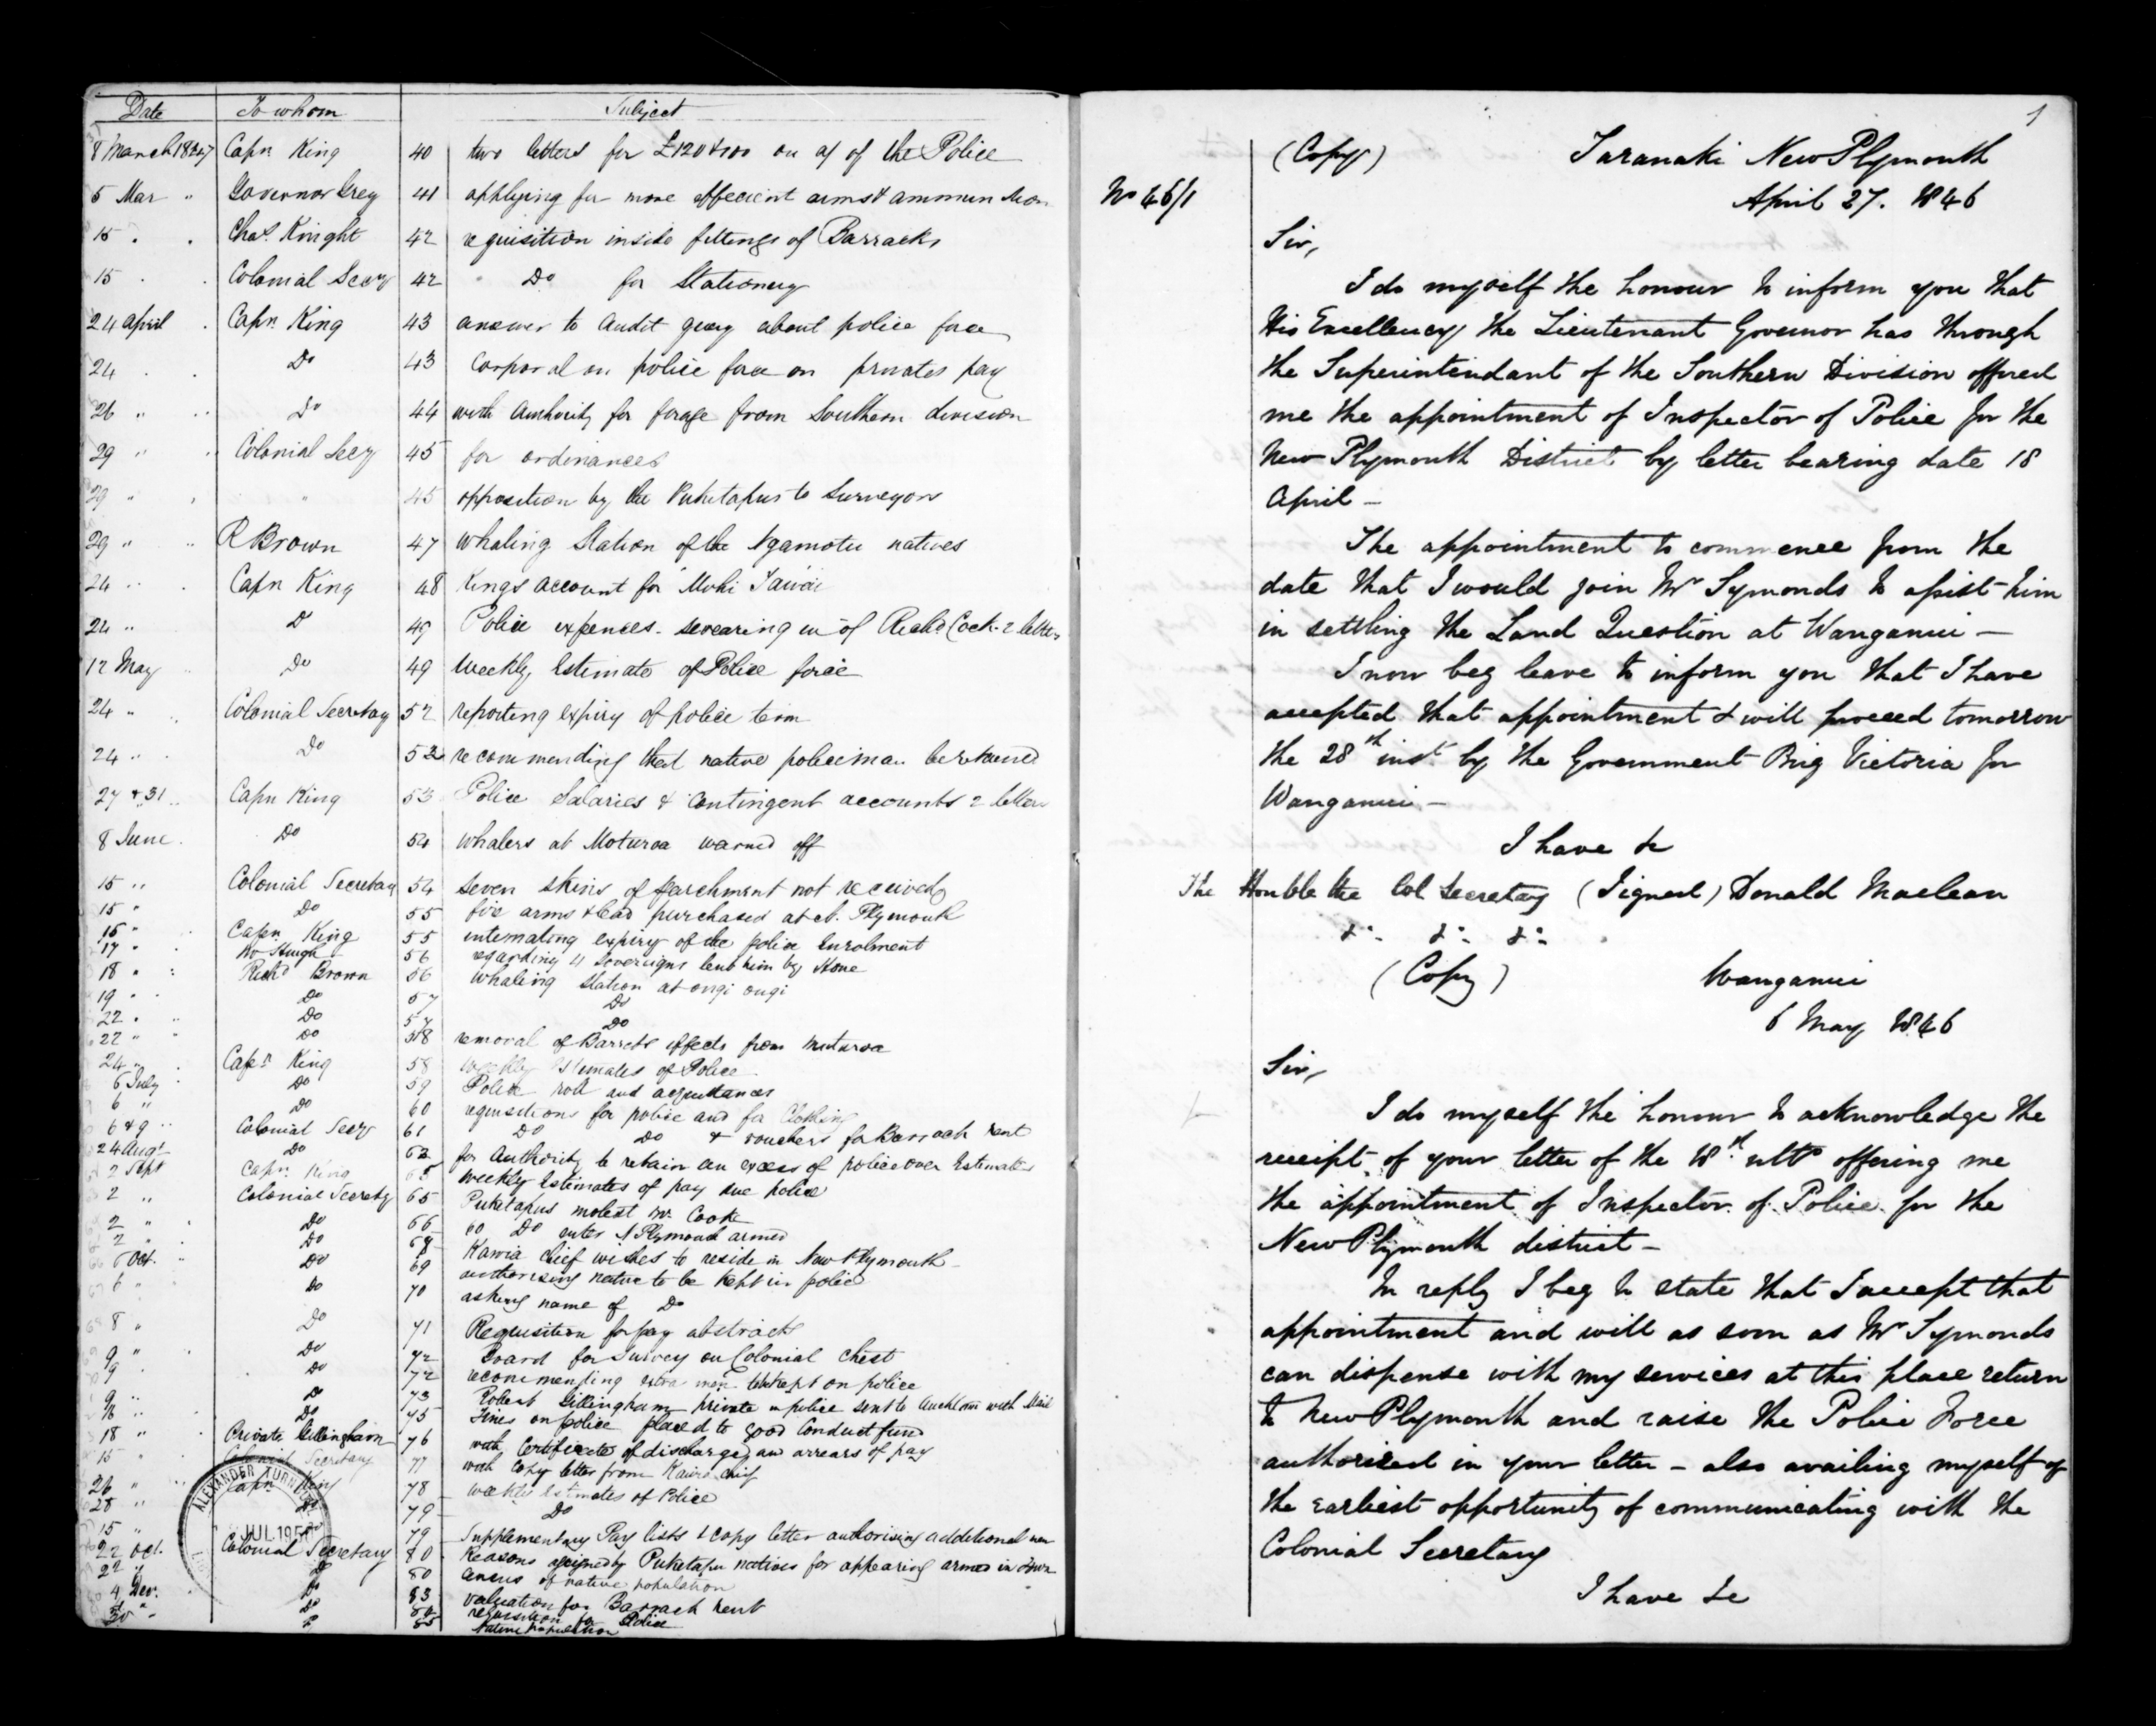 Date To whom Subject
8 March 1847 Capn King 40 two letters for £120 & 100 on a/ of the Police
5 Mar " Governor Grey 41 applying for more effecient arms & ammunition
15 " " Chas. Knight 42 requisition inside fittings of Barracks
15 " " Colonial Secry 42 " Do for Stationery
24 April " Capn King 43 answer to Audit query about police force
24 " " Do 43 Corporal on police force on privates pay
26 " " Do 44 with Authority for forage from Southern division
29 " " Colonial Secy 45 for ordinances
29 " " " 45 opposition by the Puketapus to Surveyors
29 " " R Brown 47 Whaling Station of the Ngamotu natives
24 " " Capn King 48 Kings account for Mohi Tawai
24 " D 49 Police expences. swearing in of Richd Cock. 2 letters
12 May " Do 49 Weekly Estimate of Police force
24 " " Colonial Secretary 52 reporting expiry of police term
24 " " Do 52 recommending that native policeman be retained
27 & 31 " Capn King 53 Police Salaries & Contingent accounts 2 letters
8 June " Do 54 Whalers at Moturoa warned off
15 " Colonial Secretary 54 Seven skins of parchment not received
15 " Do 55 fire arms & lead purchased at N. Plymouth
15 " Capn King 55 intimating expiry of the police Enrolment
17 " " 56 regarding 4 Sovereigns lent him by Hone
18 " : Richd Brown 56 Whaling Station at ongi ongi
19 " " Do 57 Do
22 " " Do 57 Do
22 " " Do 58 removal of Barretts effects from Moturoa
24 " Capn King 58 Weekly Estimates of Police
6 July " Do 59 Police roll and acquittances
6 " Do 60 requisitions for police and for Clothing
6 & 9 " Colonial Secry 61 Do Do & vouchers for Barrack rent
24 Augt Do 62 for Authority to retain an excess of police over Estimates
2 Sept Capn King 65 Weekly Estimates of pay due police
2 " Colonial Secrety 65 Puketapus molest Mr. Cooke
2 " " Do 66 60 Do enter N Plymouth armed
2 " " Do 68 Kawia chief wishes to reside in New Plymouth
6 Oct. " Do 69 authorising native to be kept in police
6 " Do 70 asking name of Do
8 " Do 71 Requisition for pay abstracts
9 " Do 72 Board for Survey on Colonial Chest
9 " Do 72 recommending extra men be kept on police
9 " Do 73 Robert Gillingham private in police sent to Auckland with Mail
16 " Do 75 Fines on police placed to good Conduct fund
18 " Private Gillingham 76 with Certificate of discharge and arrears of pay
15 " Colonial Secretary 77 with Copy letter from Kawia chief
26 " " Capn King 78 Weekly estimates of Police
28 " Do 79 Do
15 " 79 Supplementary Pay lists & copy letter authorising additional men
22 Oct. Colonial Secretary 80 Reasons assigned by Puketapu natives for appearing armed in Town
22 " Do 80 Census of native population
4 Decr. Do 83 valuation for Barrack rent
Do 84 requisition for Police
30 " 85 Native population
ALEXANDER TURNBULL
JUL 195
1
(Copy) Taranaki New Plymouth
No 46/1 April 27. 1846
Sir,
I do myself the honour to inform you that
His Excellency the Lieutenant Governor has through
the Superintendant of the Southern Division offered
me the appointment of Inspector of Police for the
New Plymouth District by letter bearing date 18
April —
The appointment to commence from the
date that I would join Mr Symonds to assist him
in settling the Land Question at Wanganui —
I now beg leave to inform you that I have
accepted that appointment & will proceed tomorrow
the 28th inst. by the Government Brig Victoria for
Wanganui —
I have &c
The Honble the Col Secretary (Signed) Donald Maclean
&c &c &c
(Copy) Wanganui
6 May 1846
Sir,
I do myself the honour to acknowledge the
receipt of your letter of the 18th. ulto offering me
the appointment of Inspector of Police for the
New Plymouth district —
In reply I beg to state that I accept that
appointment and will as soon as Mr Symonds
can dispense with my services at this place return
to New Plymouth and raise the Police Force
authorized in your letter — also availing myself of
the earliest opportunity of communicating with the
Colonial Secretary
I have &c